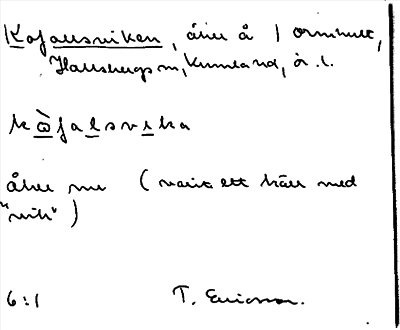 Kofallsviken, åker å 1 ormhult,
Hallsbergs sn, Kumla hd, ör. l.
kòfalsvika
åker nu (varit ett kärr med
"vik")
6:1 T. Ericsson.